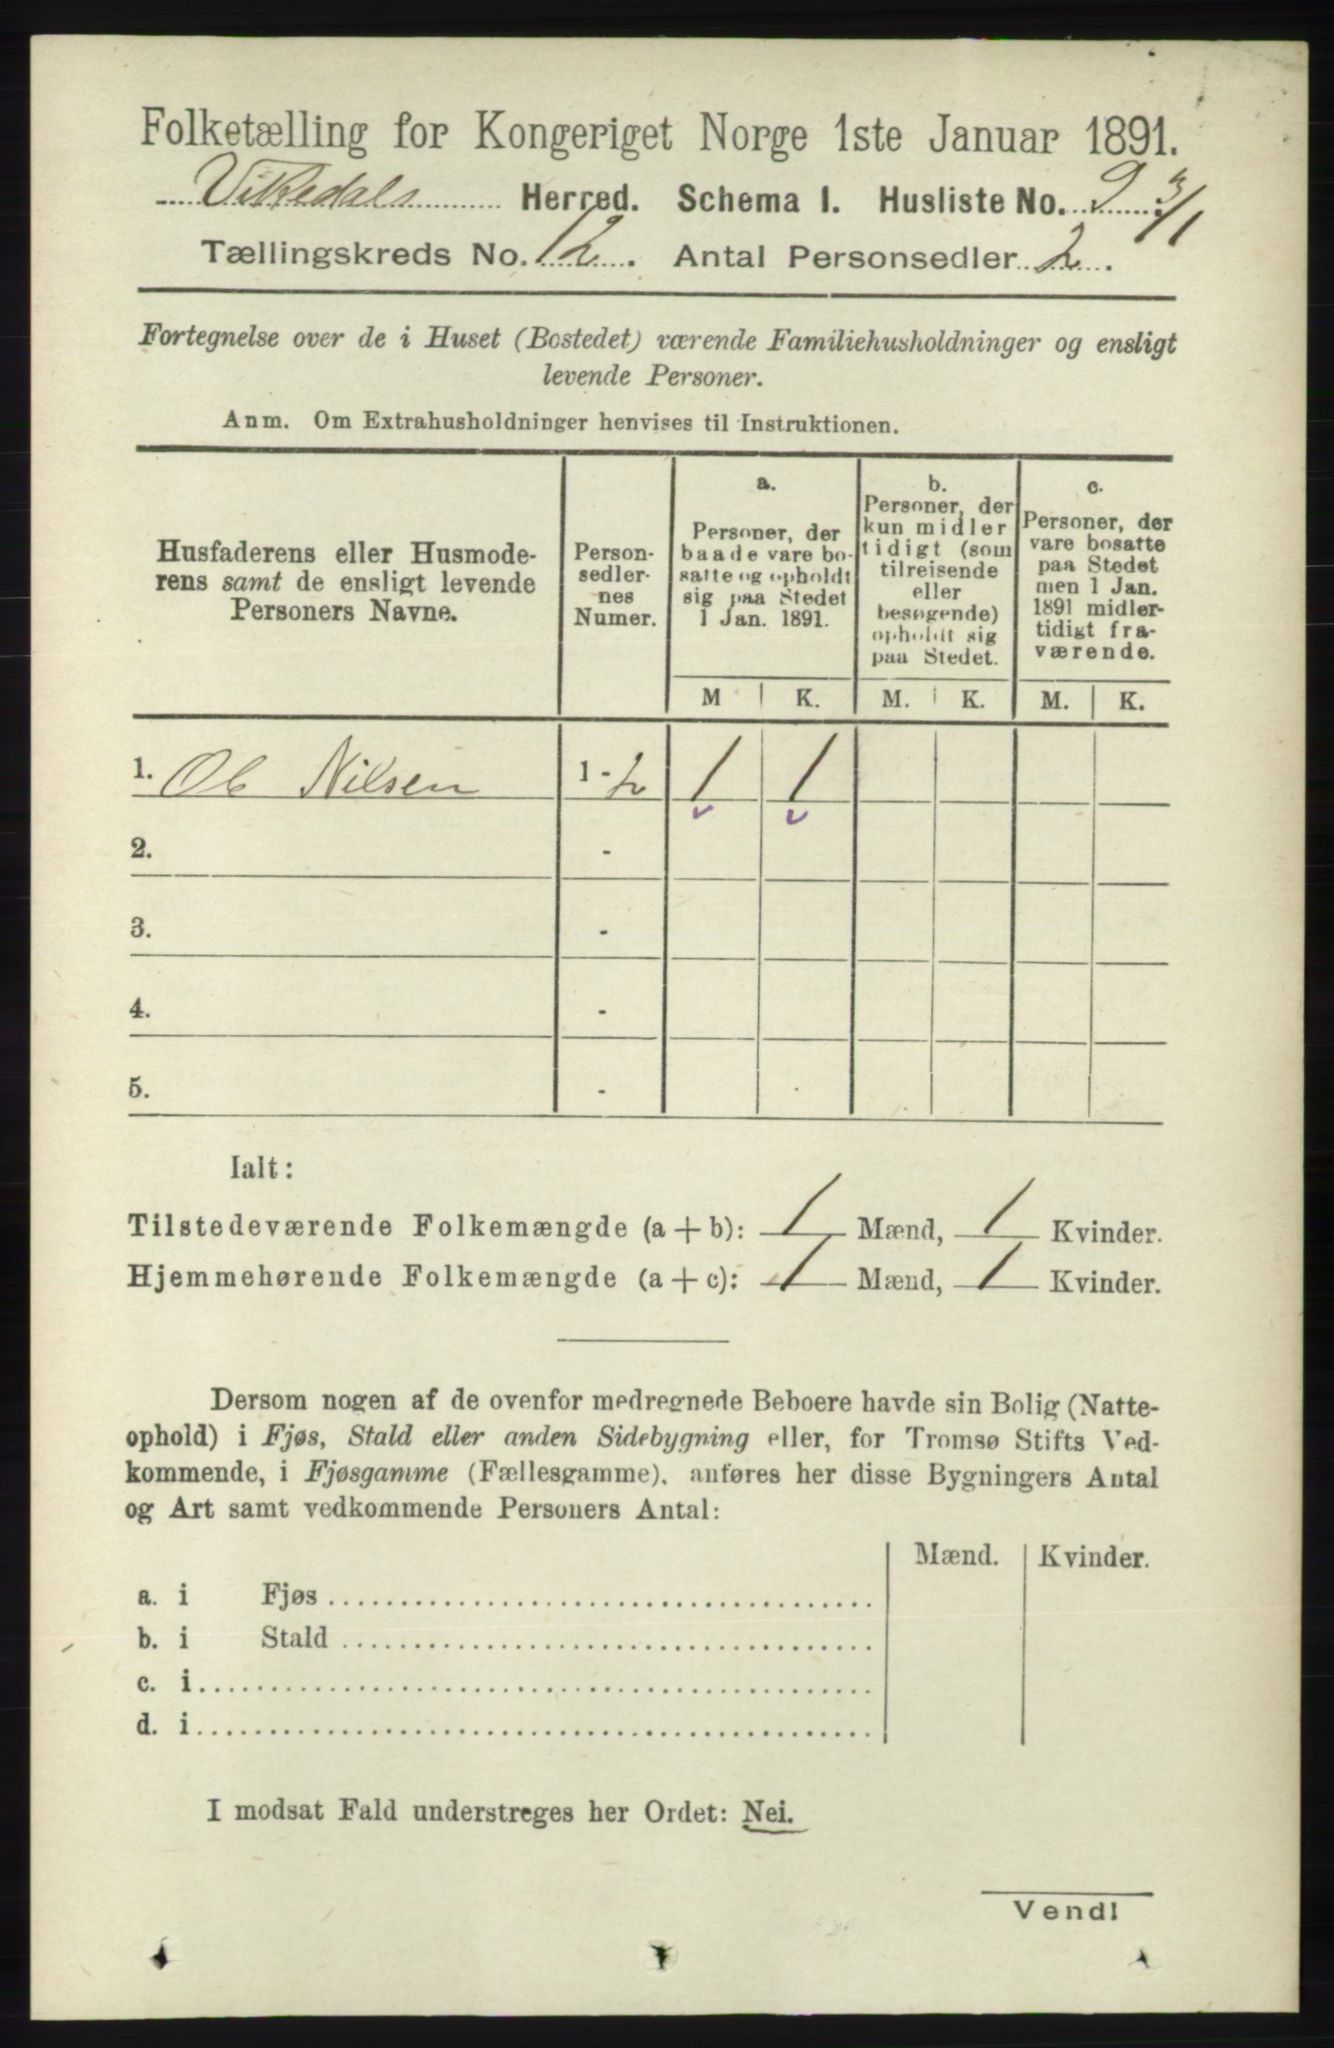 Folketælling for Kongeriget Norge 1ste Januar 1891.
Vikedals Herred. Schema I. Husliste No. 9 3/1
Tællingskreds No. 12. Antal Personsedler 2.
Fortegnelse over de i Huset (Bostedet) værende Familiehusholdninger og ensligt
levende Personer.
Anm. Om Extrahusholdninger henvises til Instruktionen.
Husfaderens eller Husmode-
rens samt de ensligt levende
Personers Navne.
Person-
sedler-
nes
Numer.
a.
Personer, der
baade vare bo-
satte og opholdt
sig paa Stedet
1 Jan. 1891.
b.
Personer, der
kun midler
tidigt (som
tilreisende
eller
besøgende)
opholdt sig
paa Stedet.
c.
Personer, der
vare bosatte
paa Stedet
men 1 Jan.
1891 midler-
tidigt fra-
værende.
M K. M. K. M. K.
1. Ole Nilsen 1 - 2 1 1
2. -
3. -
4. -
5. -
Ialt:
Tilstedeværende Folkemængde (a + b): 1 Mænd, 1 Kvinder.
Hjemmehørende Folkemængde (a + c): 1 Mænd, 1 Kvinder.
Dersom nogen af de ovenfor medregnede Beboere havde sin Bolig (Natte-
ophold) i Fjøs, Stald eller anden Sidebygning eller, for Tromsø Stifts Ved-
kommende, i Fjøsgamme (Fællesgamme), anføres her disse Bygningers Antal
og Art samt vedkommende Personers Antal:
Mænd. Kvinder.
a. i Fjøs
b. i Stald
c. i
d. i
I modsat Fald understreges her Ordet: Nei.
Vend!